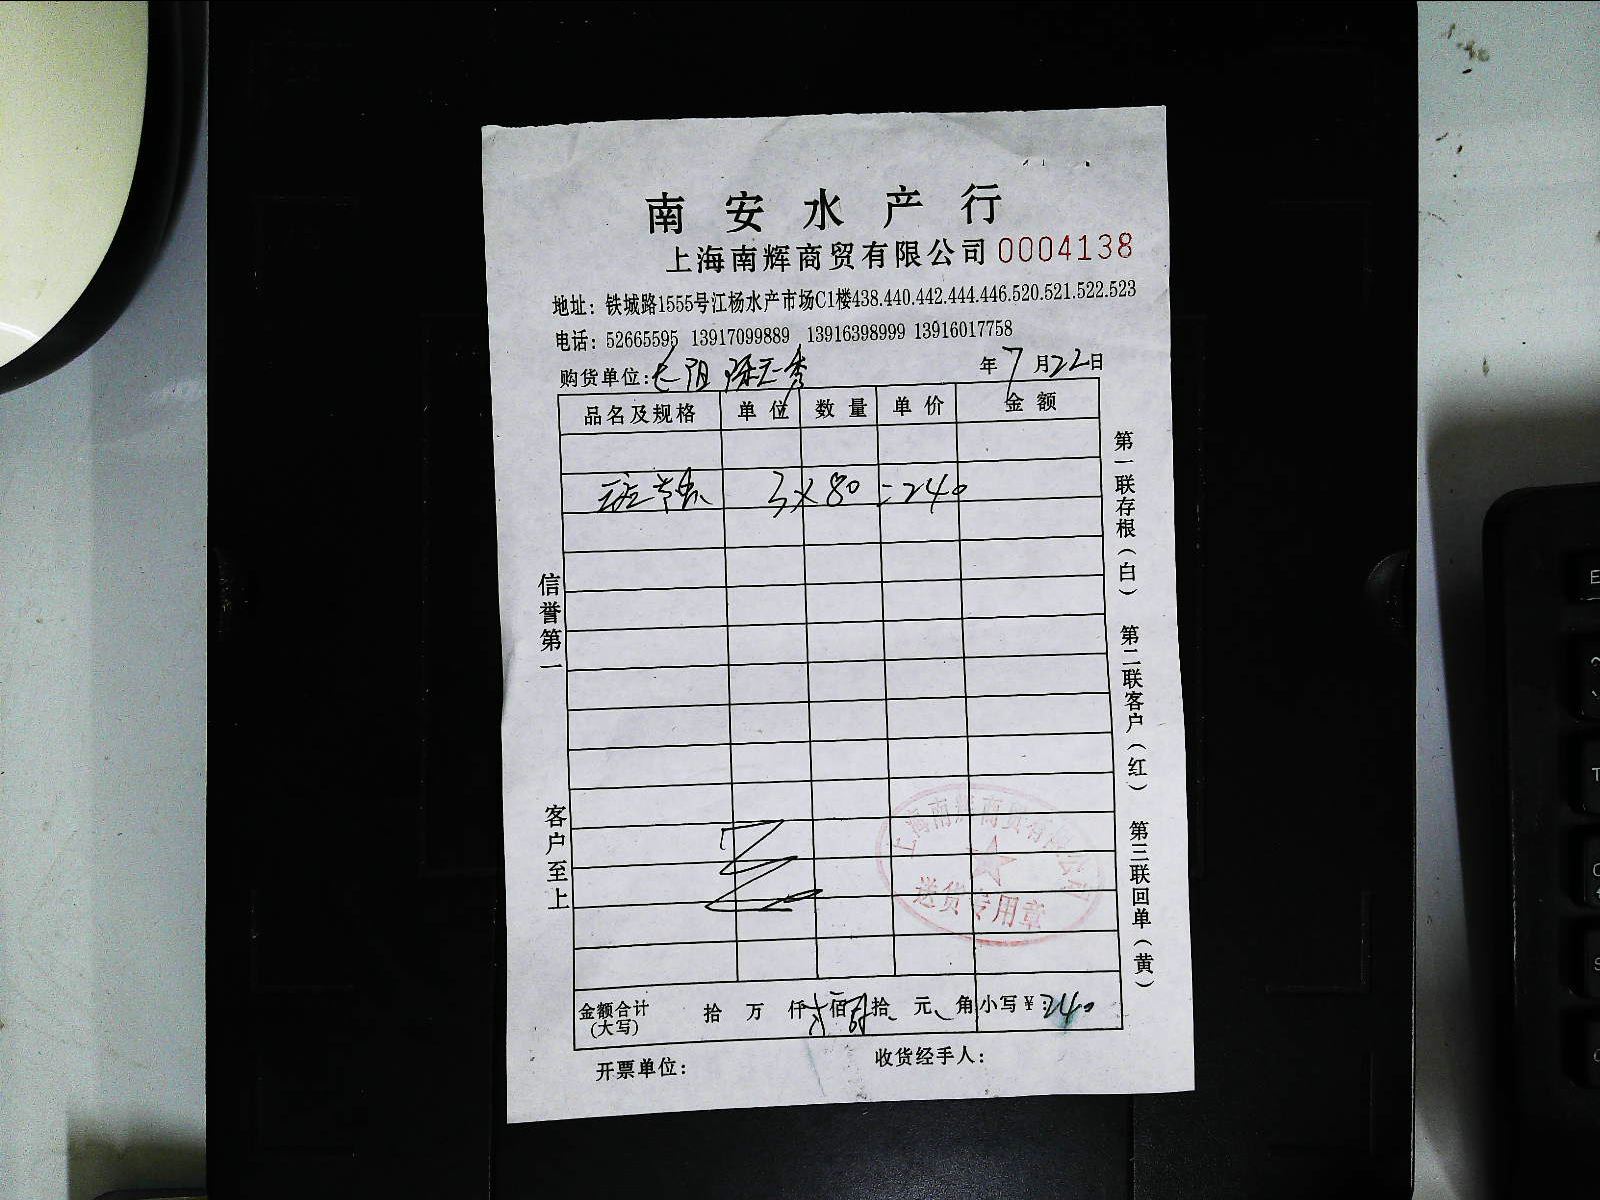 南安水产行
上海南辉商贸有限公司 0004138
地址：铁城路1555号江杨水产市场C1楼438.440.442.444.446.520.521.522.523
电话：52665595 13917099889 13916398999 13916017758
购货单位：长阳 陈玉秀 年7月22日
品名及规格 单位 数量 单价 金额
3×80=240
信誉第一
客户至上
第一联存根（白）
第二联客户（红）
第三联回单（黄）
上海南辉商贸有限公司
送货专用章
金额合计 拾 万 仟 佰 拾 元 角 小写￥：240
（大写）
开票单位： 收货经手人：